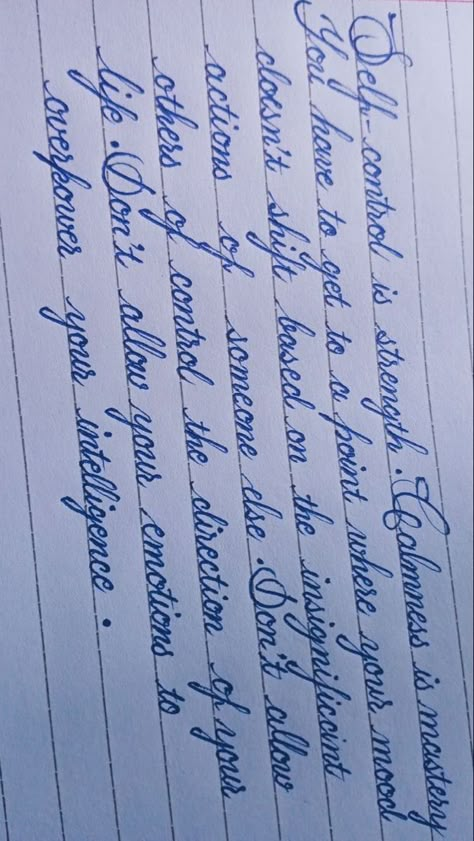 Self-control is strength. Calmness is mastery
You have to get to a point where your mood
doesn't shift based on the insignificant
actions of someone else. Don't allow
others of control the direction of your
life. Don't allow your emotions to
overpower your intelligence.